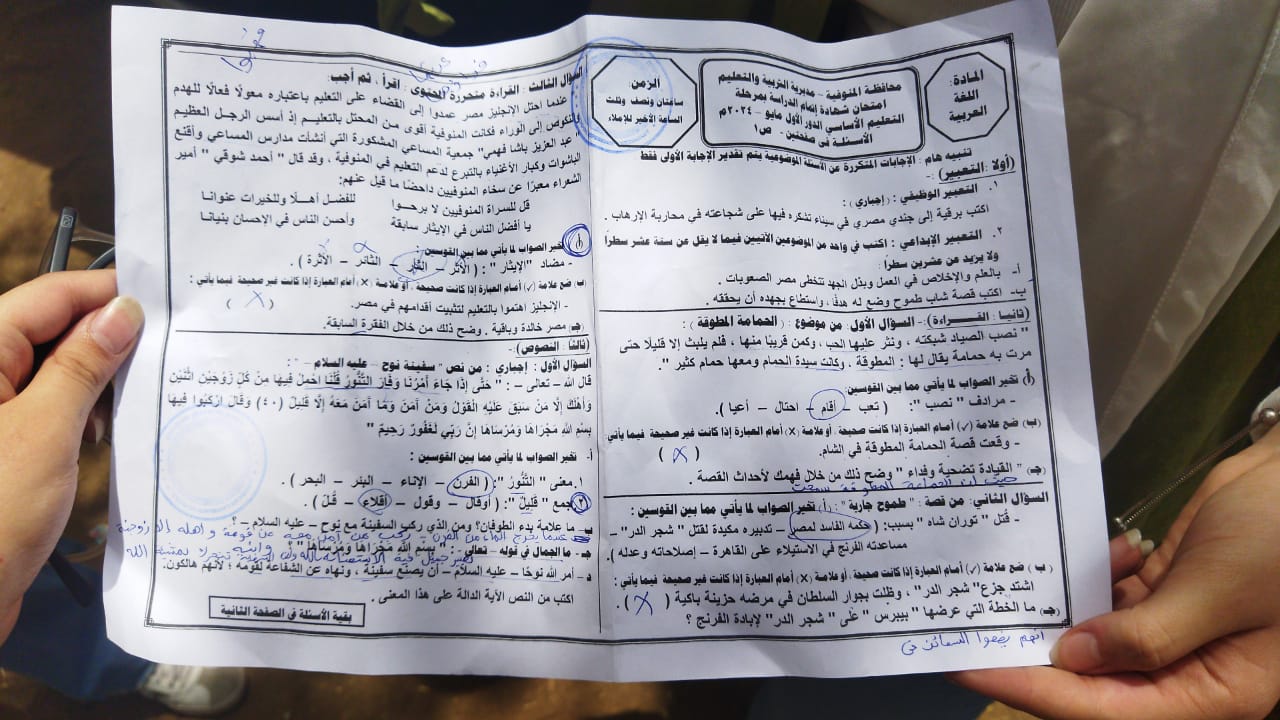 المادة:
اللغة
العربية
محافظة المنوفية - مديرية التربية والتعليم
امتحان شهادة إتمام الدراسة بمرحلة
التعليم الأساسي الدور الأول مايو – ٢٠٢٤م
الأسئلة في صفحتين - ص١
الزمن:
ساعتان ونصف وثلث
الساعة الأخير للإملاء
تنبيه هام : الإجابات المتكررة عن الأسئلة الموضوعية يتم تقدير الإجابة الأولى فقط
(أولا: التعبير) :-
١. التعبير الوظيفي : (إجباري) :
اكتب برقية إلى جندي مصري في سيناء تشكره فيها على شجاعته في محاربة الإرهاب .
٢. التعبير الإبداعي : اكتب في واحد من الموضوعين الآتيين فيما لا يقل عن ستة عشر سطرًا
ولا يزيد عن عشرين سطرًا :
أ- بالعلم والإخلاص في العمل وبذل الجهد تتخطى مصر الصعوبات .
ب- اكتب قصة شاب طموح وضع له هدفًا ، واستطاع بجهده أن يحققه .
(ثانيا : القــراءة) :- السؤال الأول: من موضوع : (الحمامة المطوقة) :
" نصب الصياد شبكته ، ونثر عليها الحب ، وكمن قريبًا منها ، فلم يلبث إلا قليلًا حتى
مرت به حمامة يقال لها : المطوقة ، وكانت سيدة الحمام ومعها حمام كثير ".
(أ) تخير الصواب لما يأتي مما بين القوسين:
- مرادف " نصب ": ( تعب – أقام – احتال – أعيا ).
(ب) ضع علامة (✓) أمام العبارة إذا كانت صحيحة ، أو علامة (×) أمام العبارة إذا كانت غير صحيحة فيما يأتي :
- وقعت قصة الحمامة المطوقة في الشام. ( X )
(جـ) " القيادة تضحية وفداء " وضح ذلك من خلال فهمك لأحداث القصة .
السؤال الثاني: من قصة : " طموح جارية" : (أ) تخير الصواب لما يأتي مما بين القوسين :
- قُتل " توران شاه " بسبب: ( حكمه الفاسد لمصر – تدبيره مكيدة لقتل " شجر الدر" –
مساعدته الفرنج في الاستيلاء على القاهرة – إصلاحاته وعدله ).
( ب ) ضع علامة (✓) أمام العبارة إذا كانت صحيحة ، أو علامة (×) أمام العبارة إذا كانت غير صحيحة فيما يأتي :
اشتد جزع" شجر الدر" ، وظلت بجوار السلطان في مرضه حزينة باكية ( X ) .
(جـ) ما الخطة التي عرضها " بيبرس" على " شجر الدر" لإبادة الفرنج ؟
السؤال الثالث : القراءة متحررة المحتوى : اقرأ ، ثم أجب :
عندما احتل الإنجليز مصر عمدوا إلى القضاء على التعليم باعتباره معولًا فعالًا للهدم
والنكوص إلى الوراء فكانت المنوفية أقوى من المحتل بالتعليم إذ أسس الرجل العظيم
" عبد العزيز باشا فهمي" جمعية المساعي المشكورة التي أنشأت مدارس المساعي وأقنع
الباشوات وكبار الأغنياء بالتبرع لدعم التعليم في المنوفية ، وقد قال " أحمد شوقي " أمير
الشعراء معبرًا عن سخاء المنوفيين داحضًا ما قيل عنهم:
قل للسراة المنوفيين لا برحوا للفضل أهلًا وللخيرات عنوانا
يا أفضل الناس في الإيثار سابقة وأحسن الناس في الإحسان بنيانا
(أ) تخير الصواب لما يأتي مما بين القوسين :
- مضاد "الإيثار" : ( الأثر – الثأر – الثائر – الأثرة ) .
(ب) ضع علامة (✓) أمام العبارة إذا كانت صحيحة ، أو علامة (×) أمام العبارة إذا كانت غير صحيحة فيما يأتي :
- الإنجليز اهتموا بالتعليم لتثبيت أقدامهم في مصر. ( X )
(جـ) مصر خالدة وباقية . وضح ذلك من خلال الفقرة السابقة.
(ثالثًا : النصوص) :-
السؤال الأول : إجباري : من نص " سفينة نوح – عليه السلام – " :
قال الله – تعالى – : " حَتَّى إِذَا جَاءَ أَمْرُنَا وَفَارَ التَّنُّورُ قُلْنَا احْمِلْ فِيهَا مِنْ كُلٍّ زَوْجَيْنِ اثْنَيْنِ
وَأَهْلَكَ إِلَّا مَنْ سَبَقَ عَلَيْهِ الْقَوْلُ وَمَنْ آمَنَ وَمَا آمَنَ مَعَهُ إِلَّا قَلِيلٌ (٤٠) وَقَالَ ارْكَبُوا فِيهَا
بِسْمِ اللَّهِ مَجْرَاهَا وَمُرْسَاهَا إِنَّ رَبِّي لَغَفُورٌ رَحِيمٌ "
أ- تخير الصواب لما يأتي مما بين القوسين :
١.معنى " التَّنُّورُ ": ( الفرن – الإناء – البئر – البحر ) .
٢. جمع " قَلِيلٌ ": ( أوقال – وقول – أقلاء – قُلُل ) .
ب – ما علامة بدء الطوفان؟ ومن الذي ركب السفينة مع نوح – عليه السلام – ؟
جـ - ما الجمال في قوله – تعالى- : " بِسْمِ اللَّهِ مَجْرَاهَا وَمُرْسَاهَا" ؟
د – أمر الله نوحًا – عليه السلام – أن يصنع سفينة ، ونهاه عن الشفاعة لقومه ؛ لأنهم هالكون.
اكتب من النص الآية الدالة على هذا المعنى .
بقية الأسئلة في الصفحة الثانية